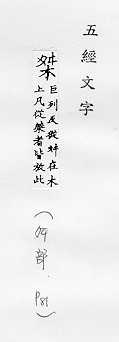 五經文字
桀
巨列反從舛在木
上凡從桀者皆放此
(舛部.P81)